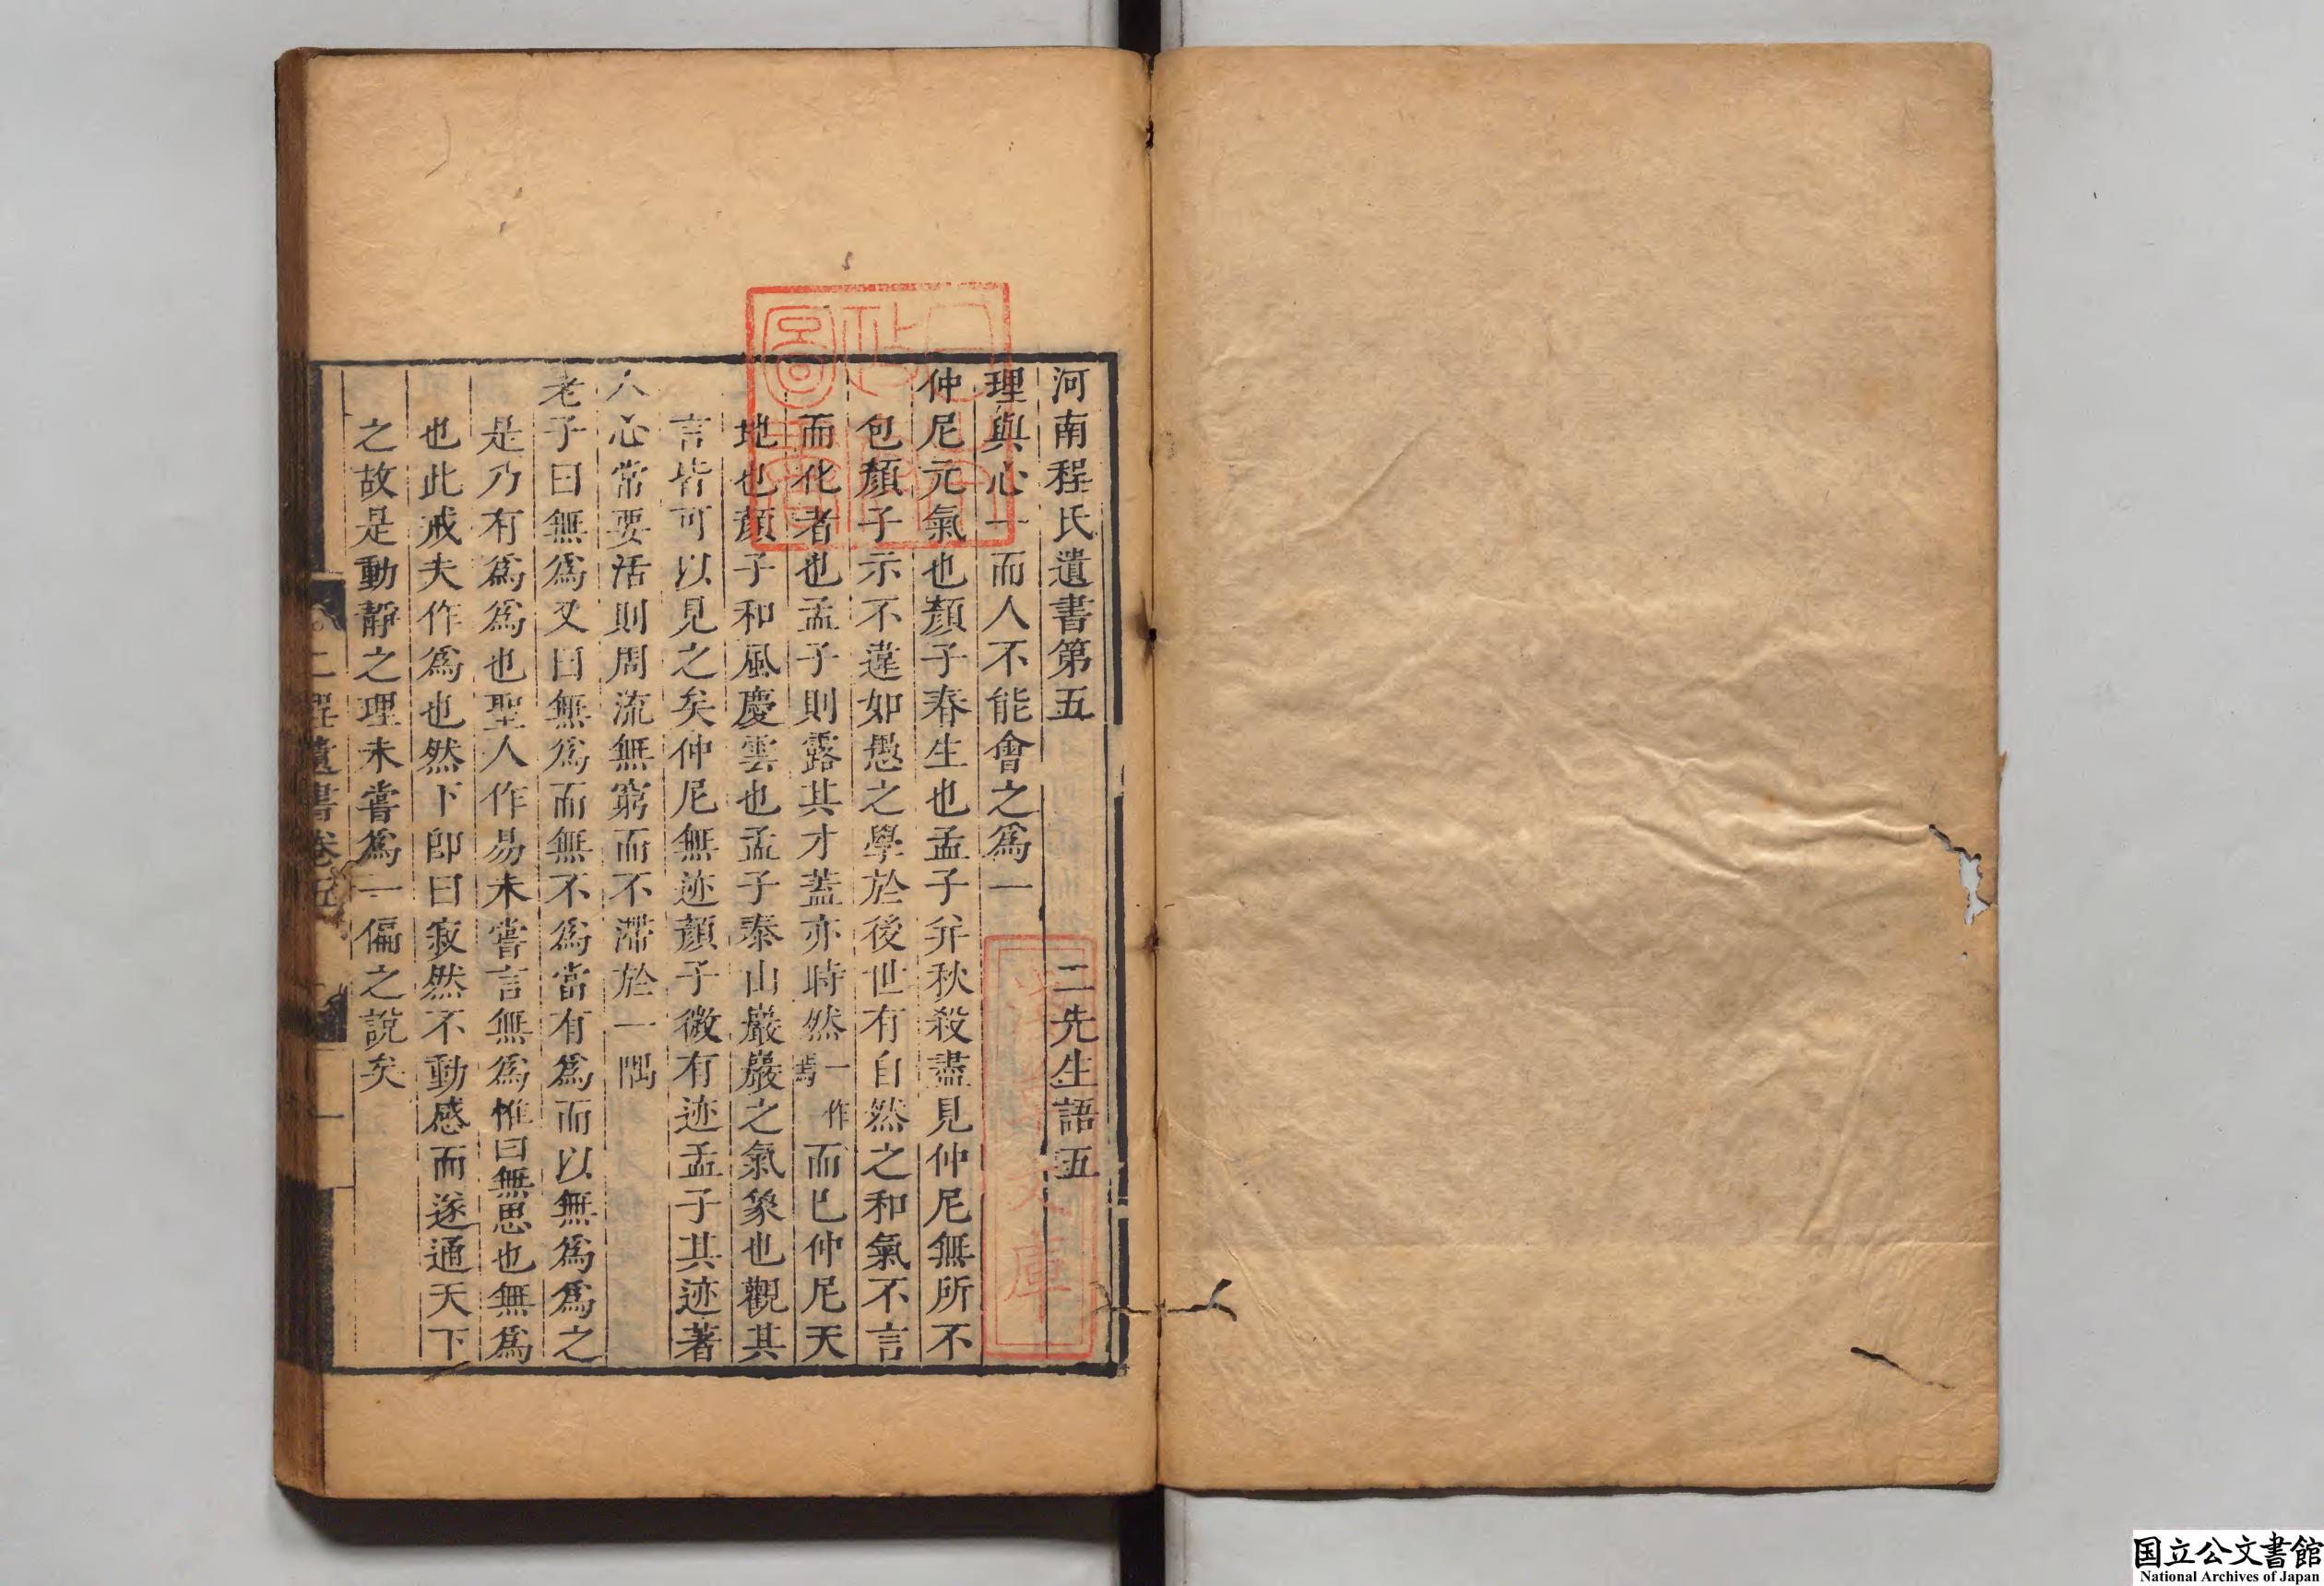 河南程氏遺書第五　二先生語五
理與心一而人不能會之爲一
仲尼元氣也顏子春生也孟子并秋殺盡見仲尼無所不
包顏子示不違如愚之學於後世有自然之和氣不言
而化者也孟子則露其才蓋亦時然一作焉而已仲尼天
地也顏子和風慶雲也孟子泰山巖巖之氣象也觀其
言皆可以見之矣仲尼無迹顏子微有迹孟子其迹著
人心常要活則周流無窮而不滯於一隅
老子曰無爲又曰無爲而無不爲當有爲而以無爲爲之
是乃有爲爲也聖人作易未嘗言無爲惟曰無思也無爲
也此戒夫作爲也然下即曰寂然不動感而遂通天下
之故是動靜之理未嘗爲一偏之說矣
二程遺書卷五　一
国立公文書館
National Archives of Japan